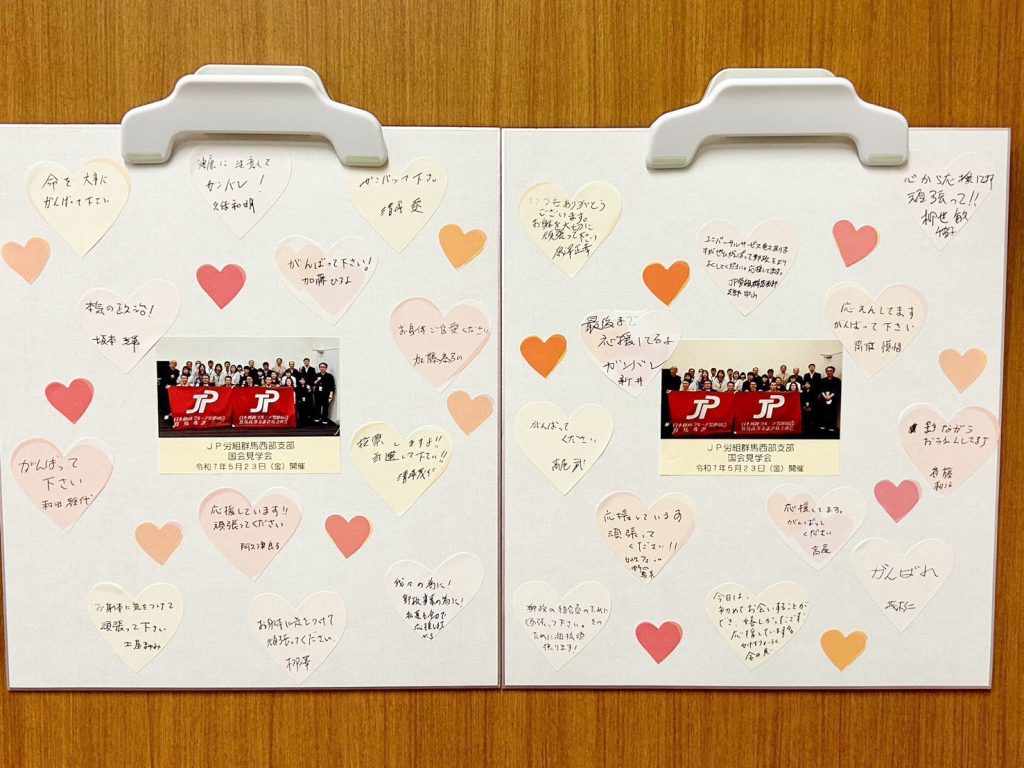 命を大事に
がんばって下さい
健康に注意して
ガンバレ!
久保和明
ガンバッテ下さい
清尾
がんばって下さい!
加藤ひろよ
の政治!
坂本
お身体ご自愛ください
加藤
JP
JP
JP労組群馬西部支部
国会見学会
令和7年5月23日(金)開催
がんばって
下さい
和田
投票しますよ!!
当選して下さい!!
応援しています!!
頑張ってください
阿久津良子
お身体に気をつけて
頑張って下さい
土屋
お身体に気をつけて
頑張ってください。
柳澤
我々の為に!
郵政事業の為に!
いつもありがとう
ございます。
お身体を大切に
頑張って下さい
ユニバーサルサービス
JP労組群馬西部
心から応援してます
頑張って!!
柳也
最後まで
応援してるよ
ガンバレ
新井
応えんしてます
がんばって下さい
JP
JP
JP労組群馬西部支部
国会見学会
令和7年5月23日(金)開催
がんばって
ください。
高邑 武
影ながら
おうえんしてます
応援しています
頑張って
ください!!
応援してます。
がんばっし
ください
高尾
がんばれ
郵政の組合員のために
頑張って下さい。その
ために組織順
張ります!
今日は、
初めてお会いすることが
でき、嬉しかったです。
応援しています。